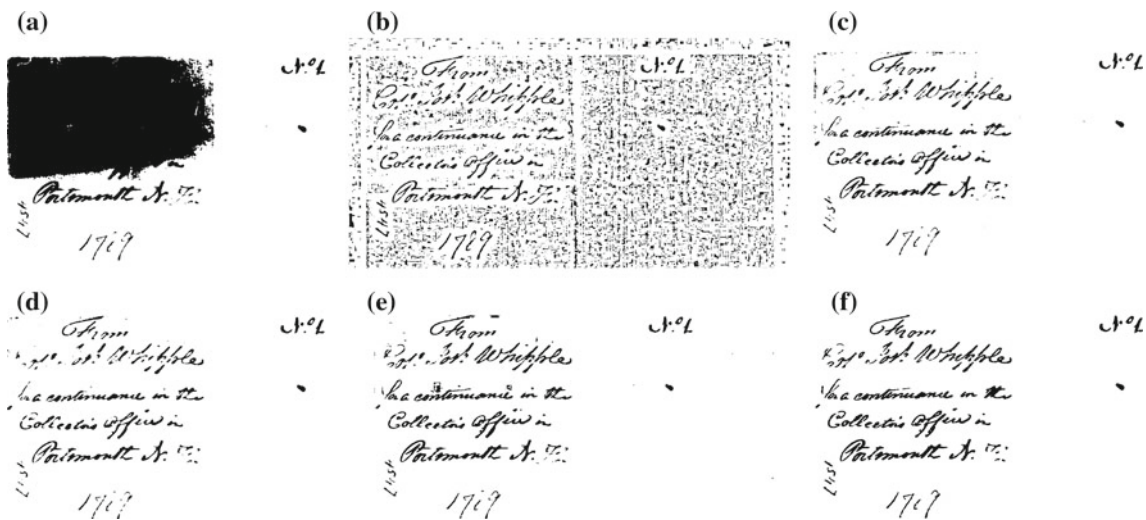 (a)
No 1
in
Portsmouth N.
List
1789
(b)
From
Jos. Whipple
for a continuance in the
Collector's office in
Portsmouth N.
List
1789
No 1
(c)
From
Jos. Whipple
for a continuance in the
Collector's office in
Portsmouth N.
List
1789
No 1
(d)
From
Jos. Whipple
for a continuance in the
Collector's office in
Portsmouth N.
List
1789
No 1
(e)
From
Jos. Whipple
for a continuance in the
Collector's office in
Portsmouth N.
List
1789
No 1
(f)
From
Jos. Whipple
for a continuance in the
Collector's office in
Portsmouth N.
List
1789
No 1